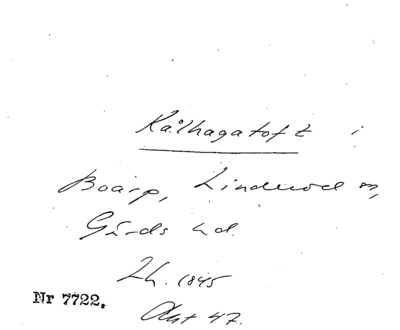 Kålhagatoft i
Boarp, Linderöd sn,
Gärds hd.
Lh. 1845
Nr 7722.
Akt 47.